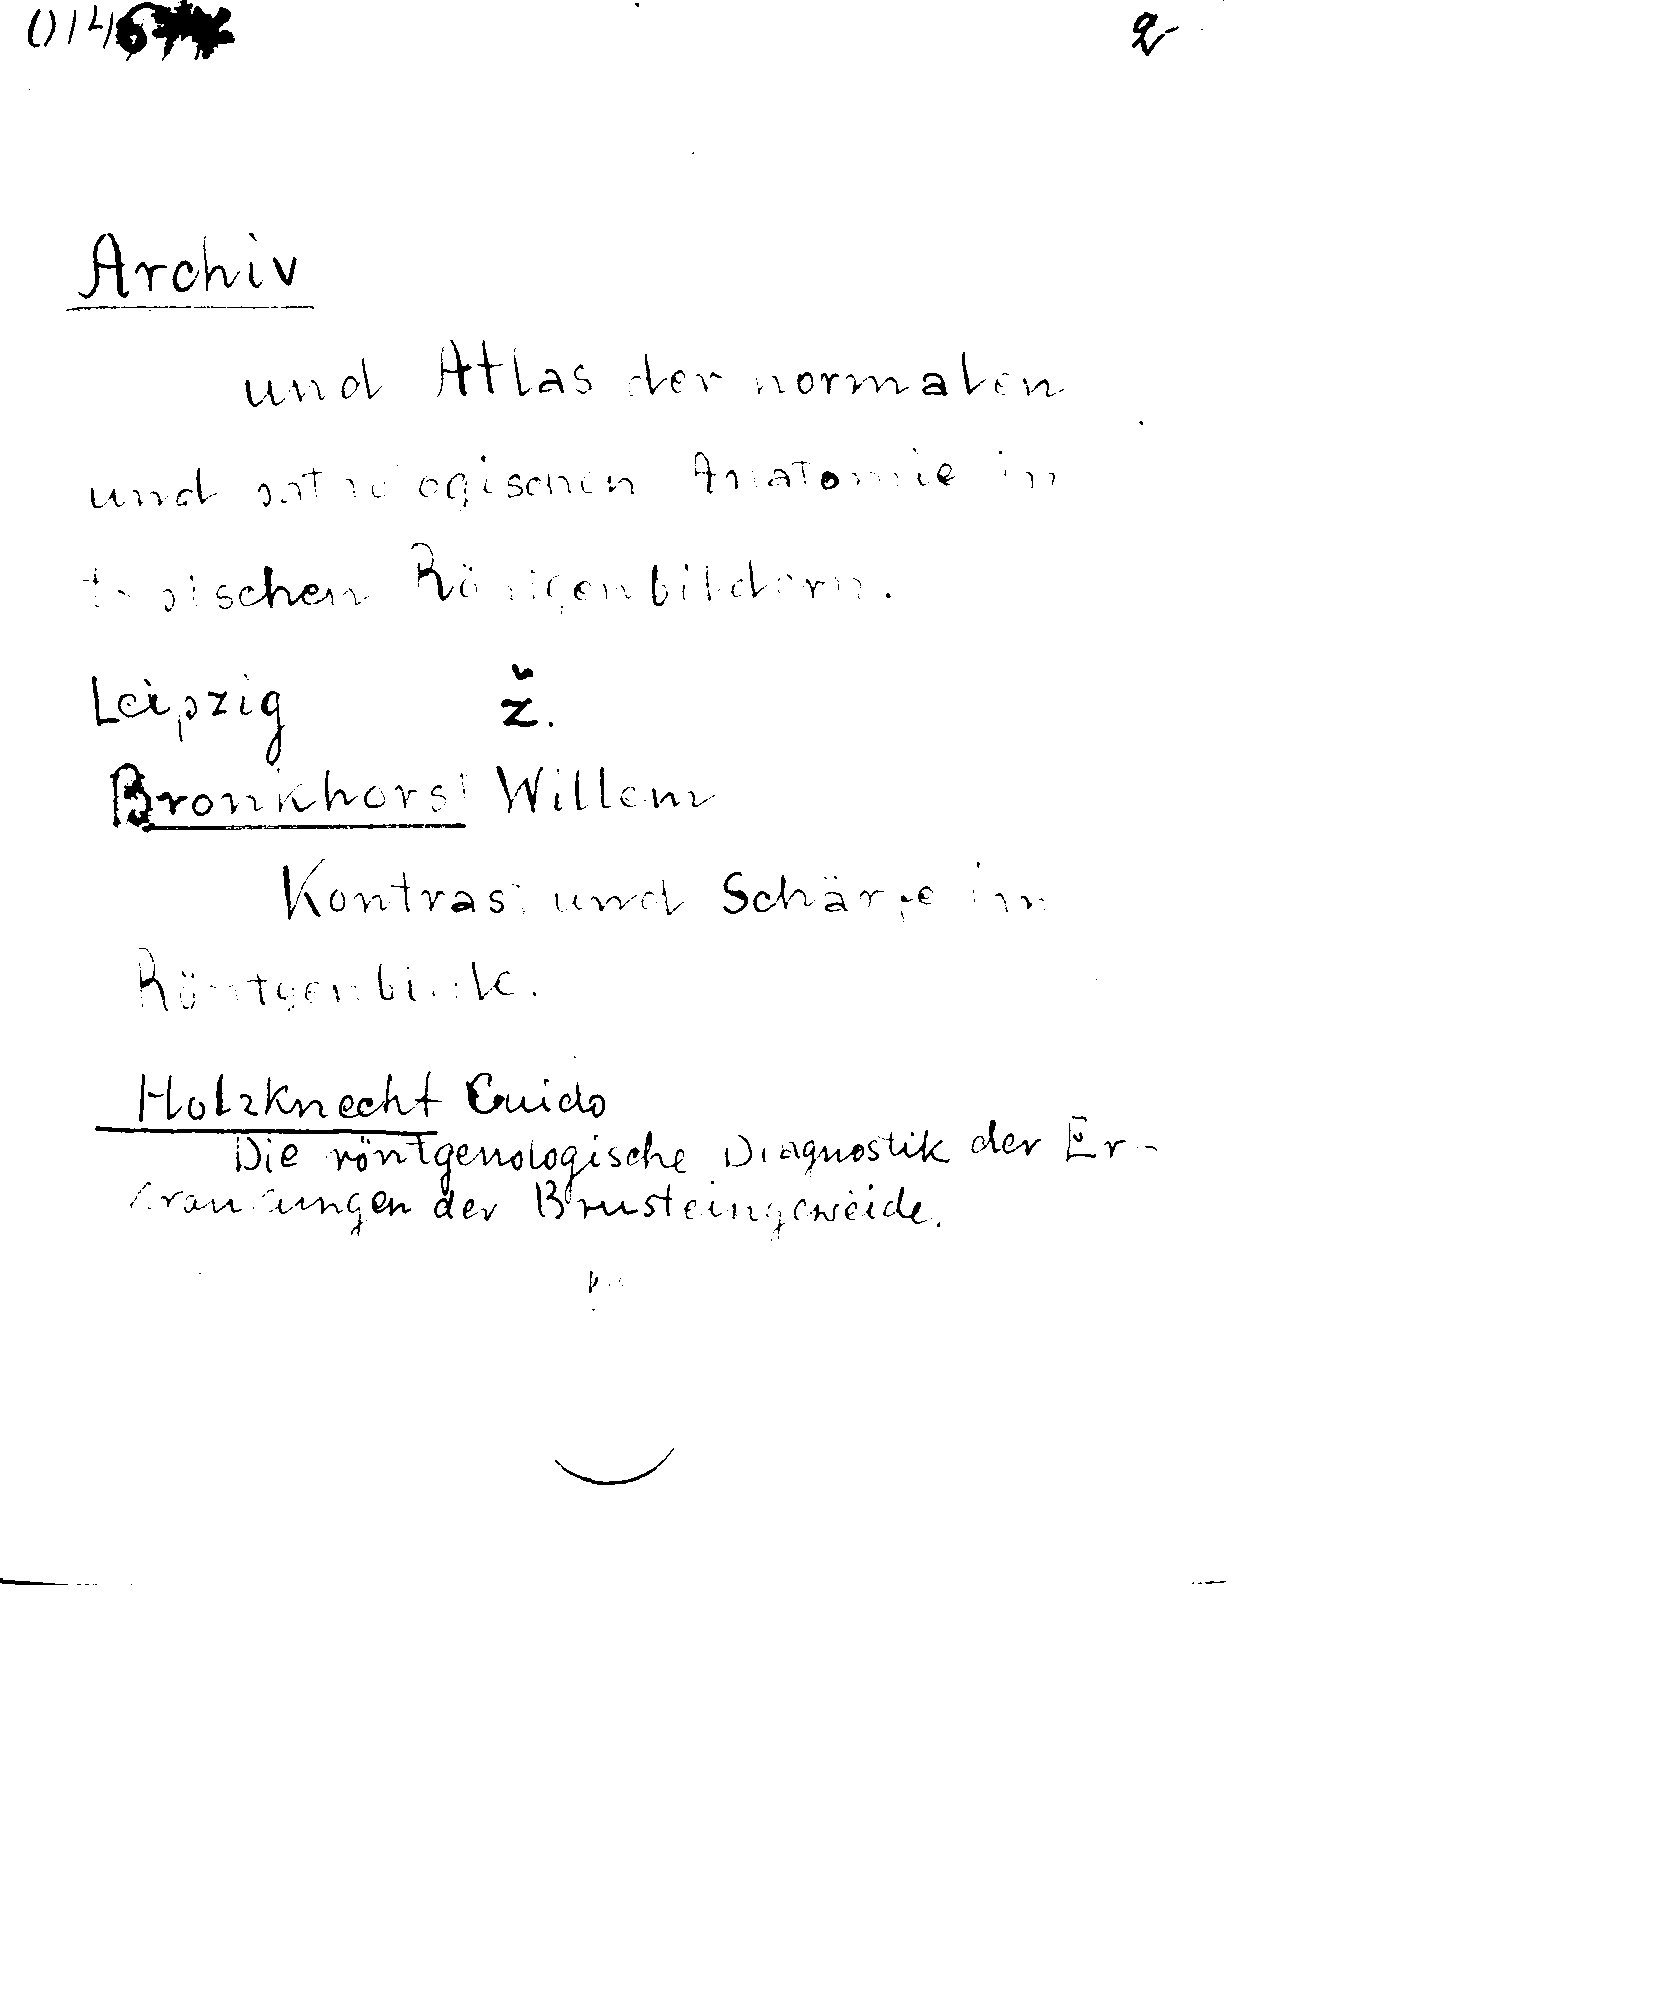 2
Archiv
und Atlas der normalen
und pathologischen Anatomie in
typischen Röntgenbildern.
Leipzig ž.
Bronkhorst Willem
Kontrast und Schärfe im
Röntgenbilde.
Holzknecht Guido
Die röntgenologische Diagnostik der Er-
krankungen der Brusteingeweide.